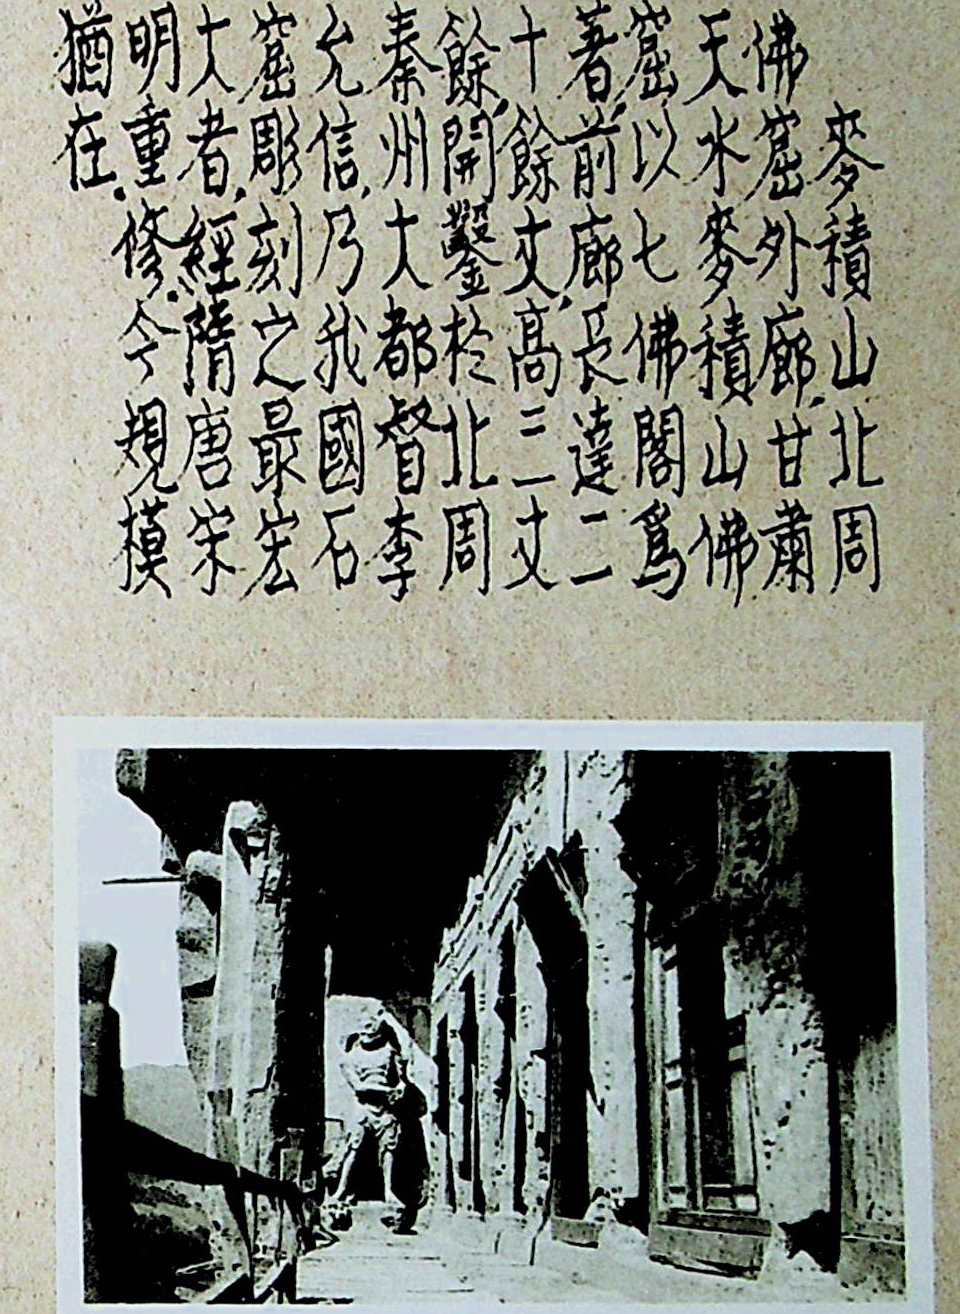 麥積山北周
佛窟外廊,甘肅
天水麥積山佛
窟,以七佛閣爲
著,前廊長達二
十餘丈,高三丈
餘,開鑿於北周
秦州大都督李
允信,乃我國石
窟彫刻之最宏
大者,經隋唐宋
明重修.今規模
猶在.